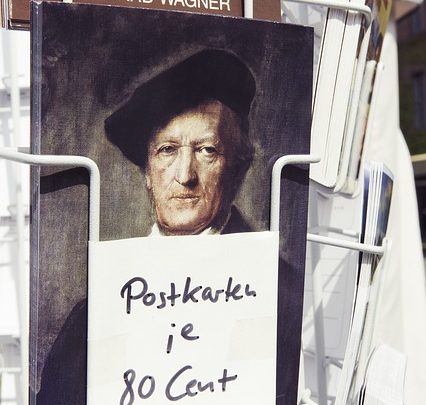 WAGNER
Postkarten
je
80 Cent